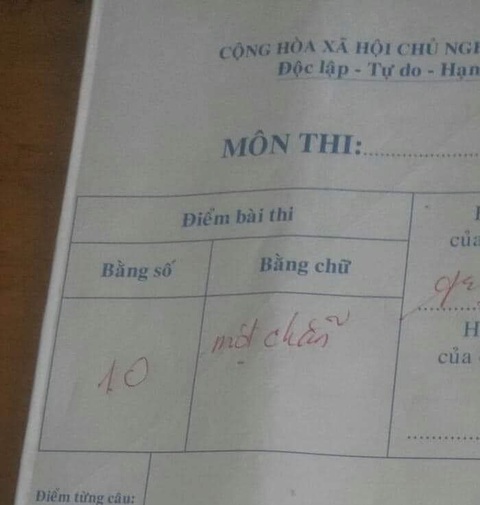 CỘNG HÒA XÃ HỘI CHỦ NGH
Độc lập - Tự do - Hạn
MÔN THI:
Điểm bài thi
Bằng số
Bằng chữ
của
10
một chẵn
H
của
Điểm từng câu: